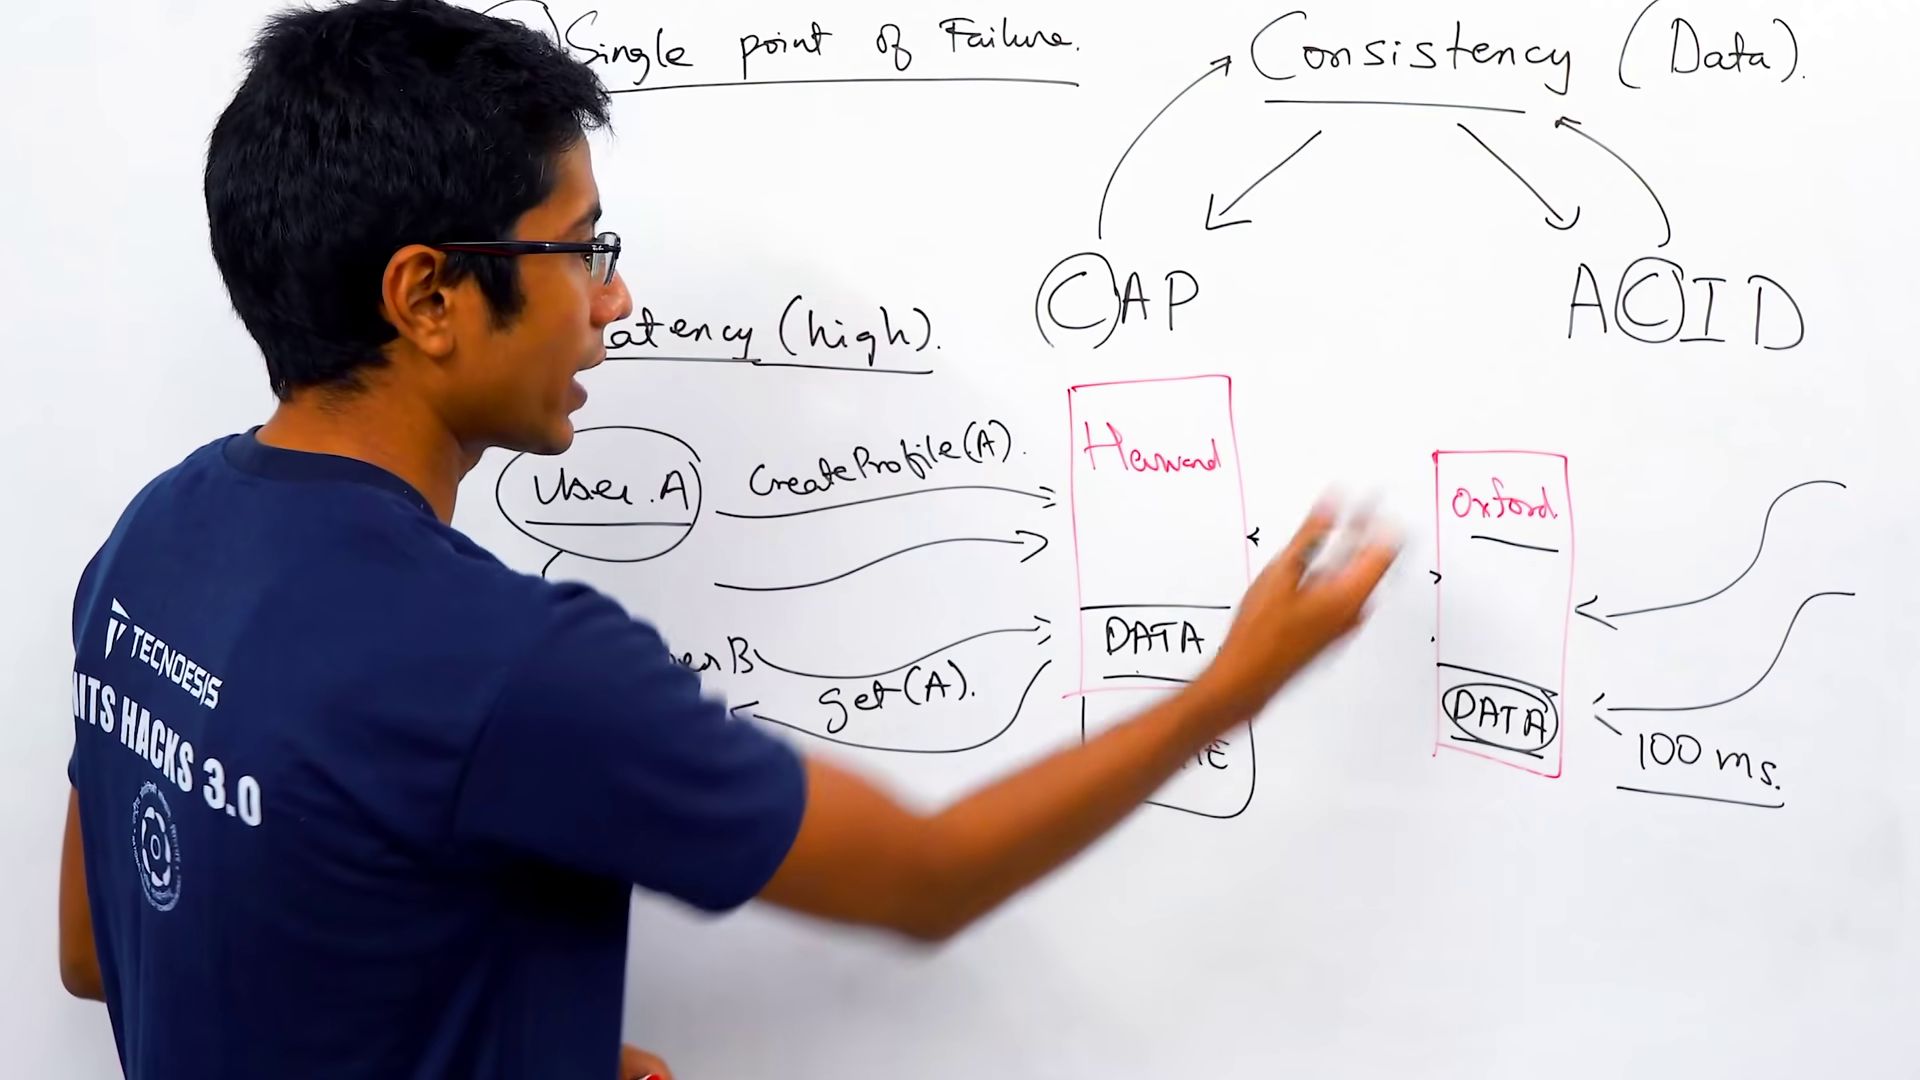 Single point of Failure.
Consistency (Data).
CAP
ACID
atency (high).
User.A
CreateProfile(A).
Harvard
Oxford
DATA
ser B
get(A).
DATA
100 ms.
TECNOESIS
HACKS 3.0